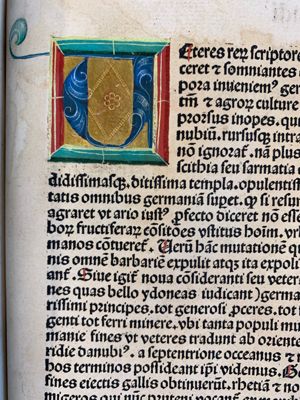 Eteres reȝ scriptore
ceret & somniantes
pora inveniemꝰ ger
tm̄ & agroꝝ culture
prorsus inopes. qu
nubiū. rursusqꝫ intra
nō ignorat̄. nā plus
scithia seu sarmatia
didissimasqꝫ. ditissima templa. opulentiss
tatis omnibus germaniam supet. Q si resu
agraret vt ario iusꝰ. ꝓfecto diceret nō esse
bor fructiferar cōsitões vſtitus hoim. vrb
manos cōtueret̄. Uerū hāc mutationē qu
nis omnē barbariē expulit atqꝫ ita expoli
ant̄. Siue igit̄ noua cōsideranti seu veter
nes quas bello ydoneas iudicant) germa
rissimi principes. tot generosi ꝓceres. tot
genti tot ferri minere. vbi tanta populi mu
manie fines vt veteres tradunt ab oriente
ridie danubiꝰ. a septentrione occeanus & r
hos terminos possideant ipi videmus. G
fines eiectis gallis obtinuerūt. rhetiā & no